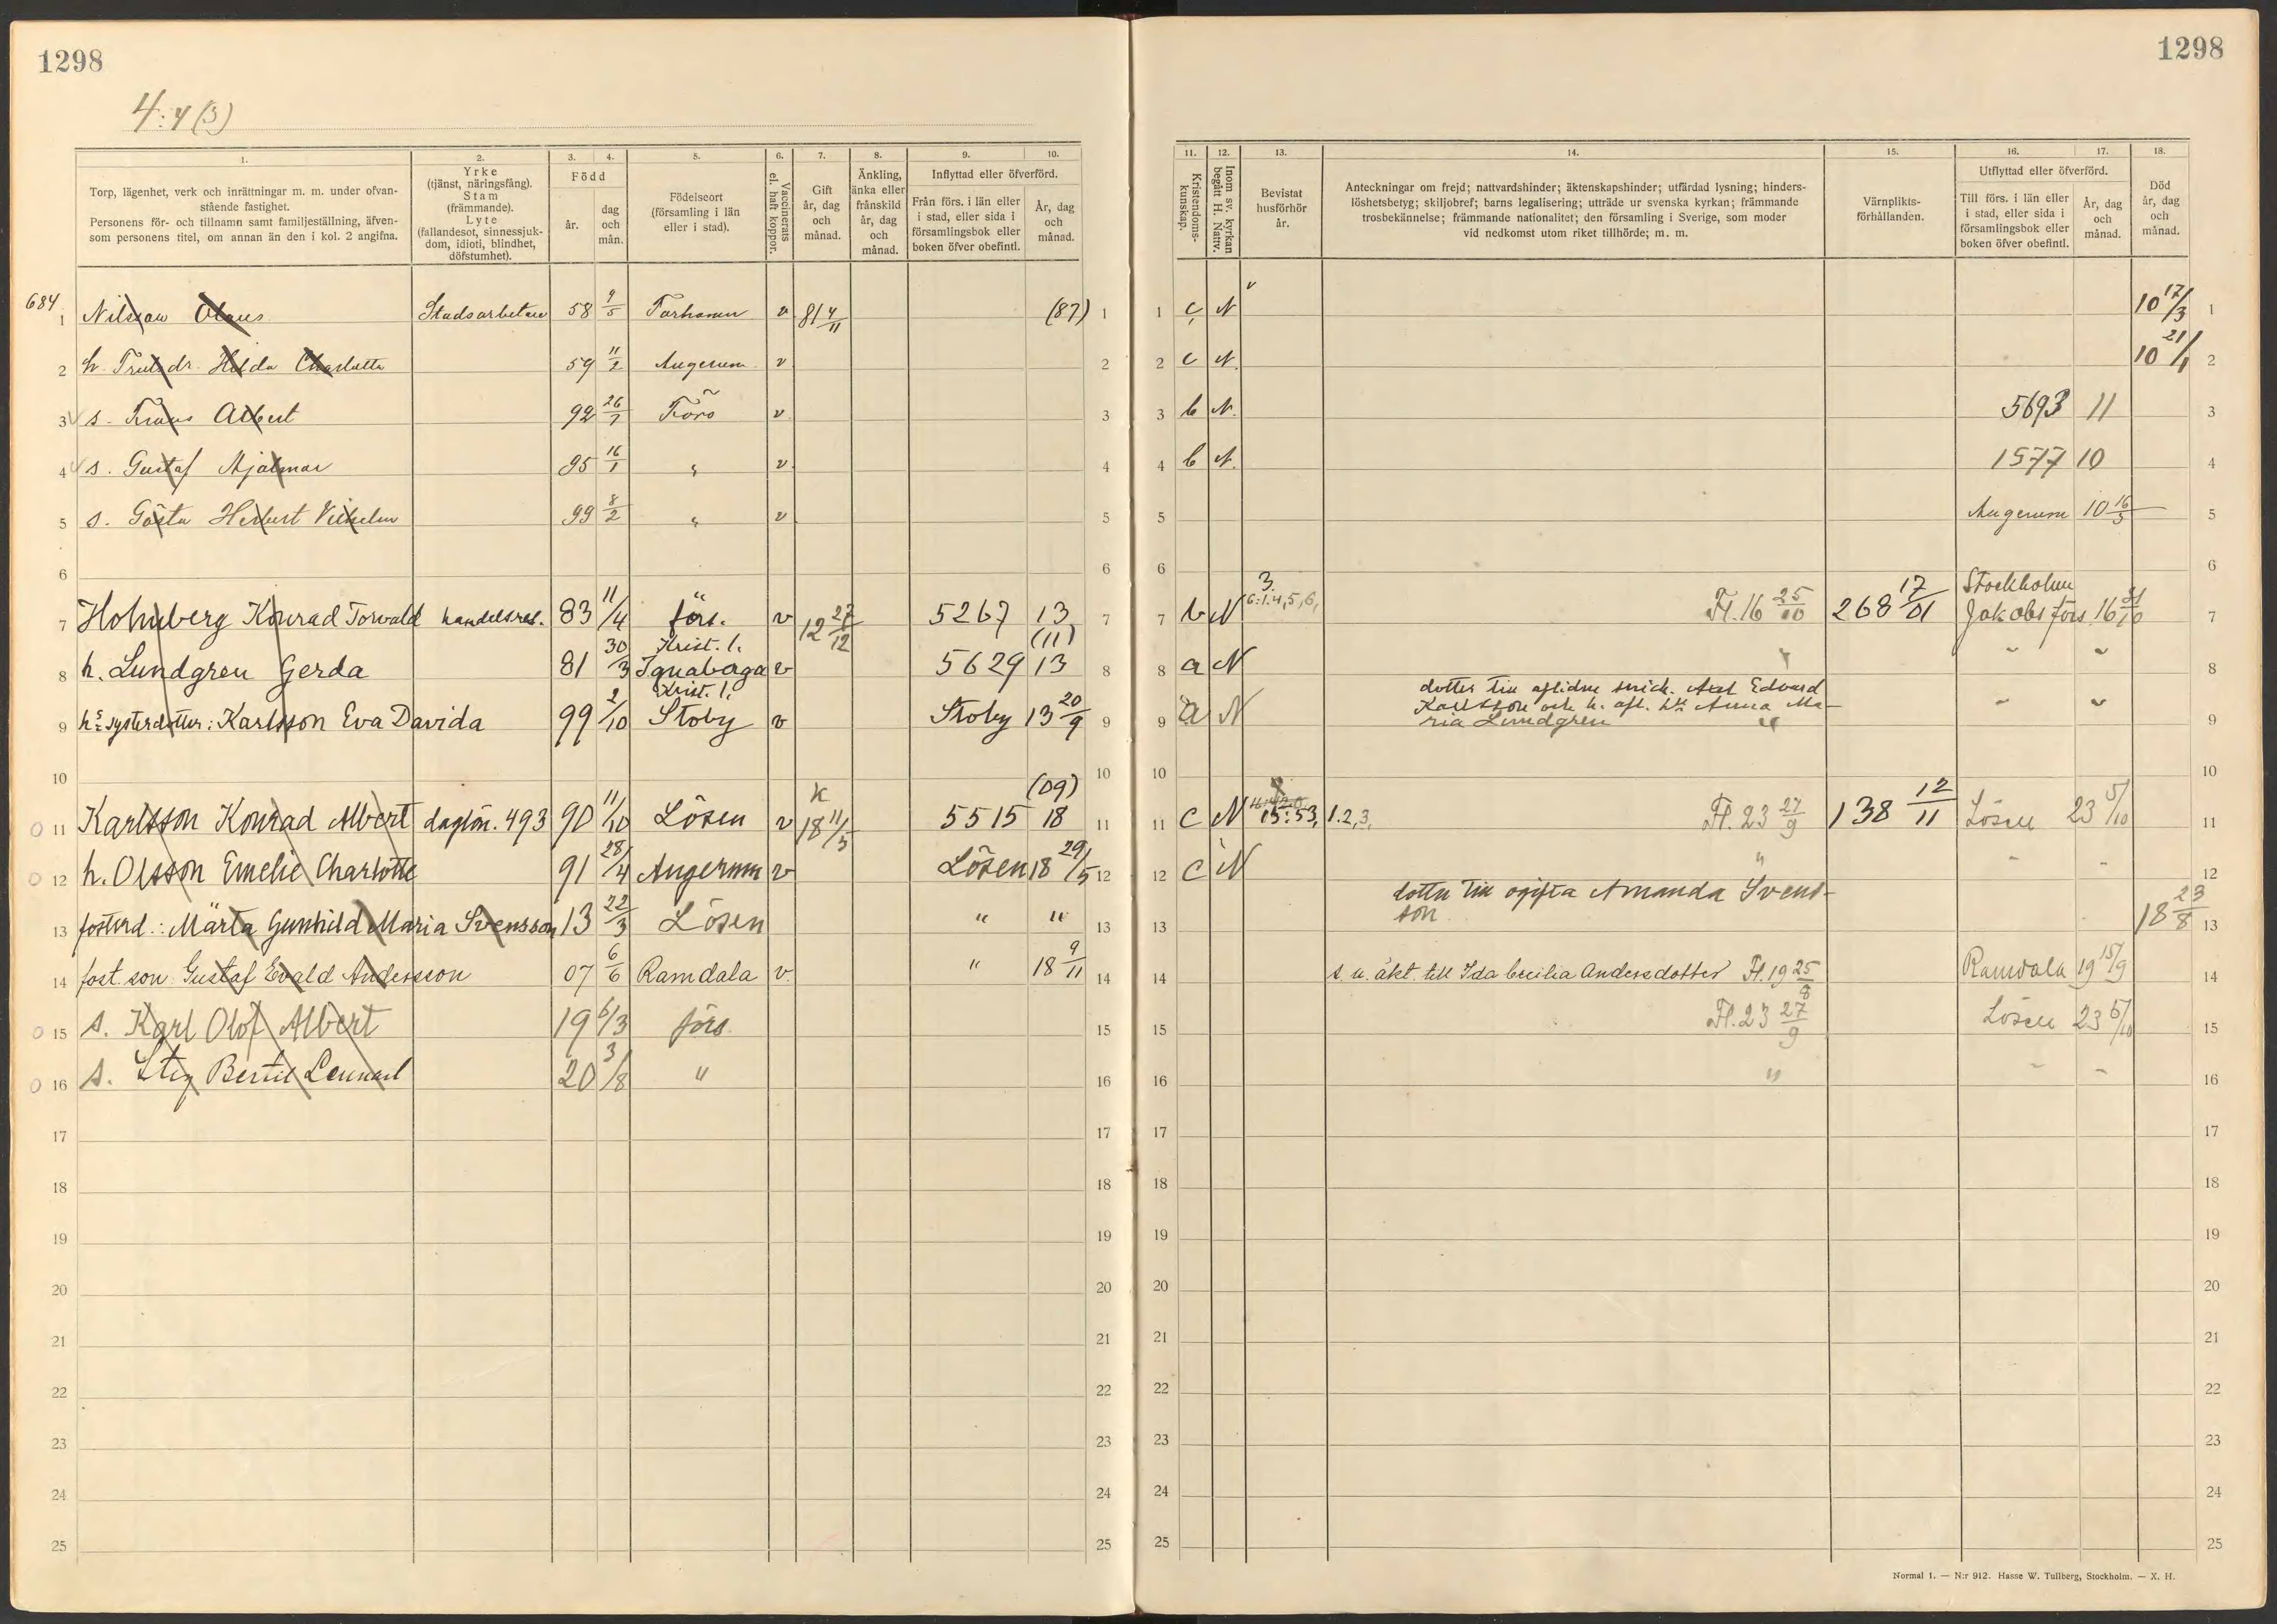 1298
1298
4:4 (3)
1.
Torp, lägenhet, verk och inrättningar m. m. under ofvan-
stående fastighet.
Personens för- och tillnamn samt familjeställning, äfven-
som personens titel, om annan än den i kol. 2 angifna.
2.
Yrke
(tjänst, näringsfång).
Stam
(främmande).
Lyte
(fallandesot, sinnessjuk-
dom, idioti, blindhet,
döfstumhet).
3. 4.
Född
år.
dag
och
mån.
5.
Födelseort
(församling i län
eller i stad).
6.
Vaccinerats
el. haft koppor.
7.
Gift
år, dag
och
månad.
8.
Änkling,
änka eller
frånskild
år, dag
och
månad.
9. 10.
Inflyttad eller öfverförd.
Från förs. i län eller
i stad, eller sida i
församlingsbok eller
boken öfver obefintl.
År, dag
och
månad.
11.
Kristendoms-
kunskap.
12.
Inom sv. kyrkan
begått H. Nattv.
13.
Bevistat
husförhör
år.
14.
Anteckningar om frejd; nattvardshinder; äktenskapshinder; utfärdad lysning; hinders-
löshetsbetyg; skiljobref; barns legalisering; utträde ur svenska kyrkan; främmande
trosbekännelse; främmande nationalitet; den församling i Sverige, som moder
vid nedkomst utom riket tillhörde; m. m.
15.
Värnplikts-
förhållanden.
16. 17.
Utflyttad eller öfverförd.
Till förs. i län eller
i stad, eller sida i
församlingsbok eller
boken öfver obefintl.
År, dag
och
månad.
18.
Död
år, dag
och
månad.
684
1 Nilsson Olaus Stadsarbetare 58 9/5 Torhamn v 81 4/11 (87) 1 1 c N 10 17/3 1
2 h. Trulsdr. Hilda Charlotta 59 11/2 Augerum v 2 2 c N. 10 21/4 2
3 s. Frans Albert 92 26/7 Förs v 3 3 b N. 5693 11 3
4 s. Gustaf Hjalmar 95 16/1 " v 4 4 b N. 1577 10 4
5 s. Gösta Herbert Vilhelm 99 8/2 " v 5 5 Augerum 10 16/5 5
6 6 6 6
7 Holmberg Konrad Torvald handelsres. 83 11/4 förs. v 12 27/12 5267 13 7 7 b N 3. 6:1.4,5,6, Fl. 16 25/10 268 17/01 Stockholm Jakobs förs. 16 31/10 7
8 h. Lundgren Gerda 81 30/3 Krist. l. Ignaberga v 5629 (11) 13 8 8 a N " " " 8
9 hs systerdotter: Karlsson Eva Davida 99 2/10 Krist. l. Stoby v Stoby 13 20/9 9 9 a N dotter till aflidne snick. Axel Edvard
Karlsson och h. afl. h. Anna Ma-
ria Lundgren " " " 9
10 10 10 10
11 Karlsson Konrad Albert daglön. 493 90 11/10 Lösen v K 18 11/5 5515 (09) 18 11 11 c N 15:53, 1.2,3, Fl. 23 27/9 138 12/11 Lösen 23 5/10 11
12 h. Olsson Emelie Charlotte 91 28/4 Augerum v Lösen 18 29/5 12 12 c N " " " 12
13 fosterd.: Märta Gunhild Maria Svensson 13 22/3 Lösen " " 13 13 dotter till ogifta Amanda Svens-
son 18 23/8 13
14 fost. son Gustaf Evald Andersson 07 6/6 Ramdala v. " 18 9/11 14 14 s. u. äkt. till Ida Cecilia Andersdotter Fl. 19 25/8 Ramdala 19 15/9 14
15 s. Karl Olof Albert 19 6/3 förs. 15 15 Fl. 23 27/9 Lösen 23 5/10 15
16 s. Stig Bertil Lennart 20 3/8 " 16 16 " " " 16
17 17 17 17
18 18 18 18
19 19 19 19
20 20 20 20
21 21 21 21
22 22 22 22
23 23 23 23
24 24 24 24
25 25 25 25
Normal 1. — N:r 912. Hasse W. Tullberg, Stockholm. — X. H.